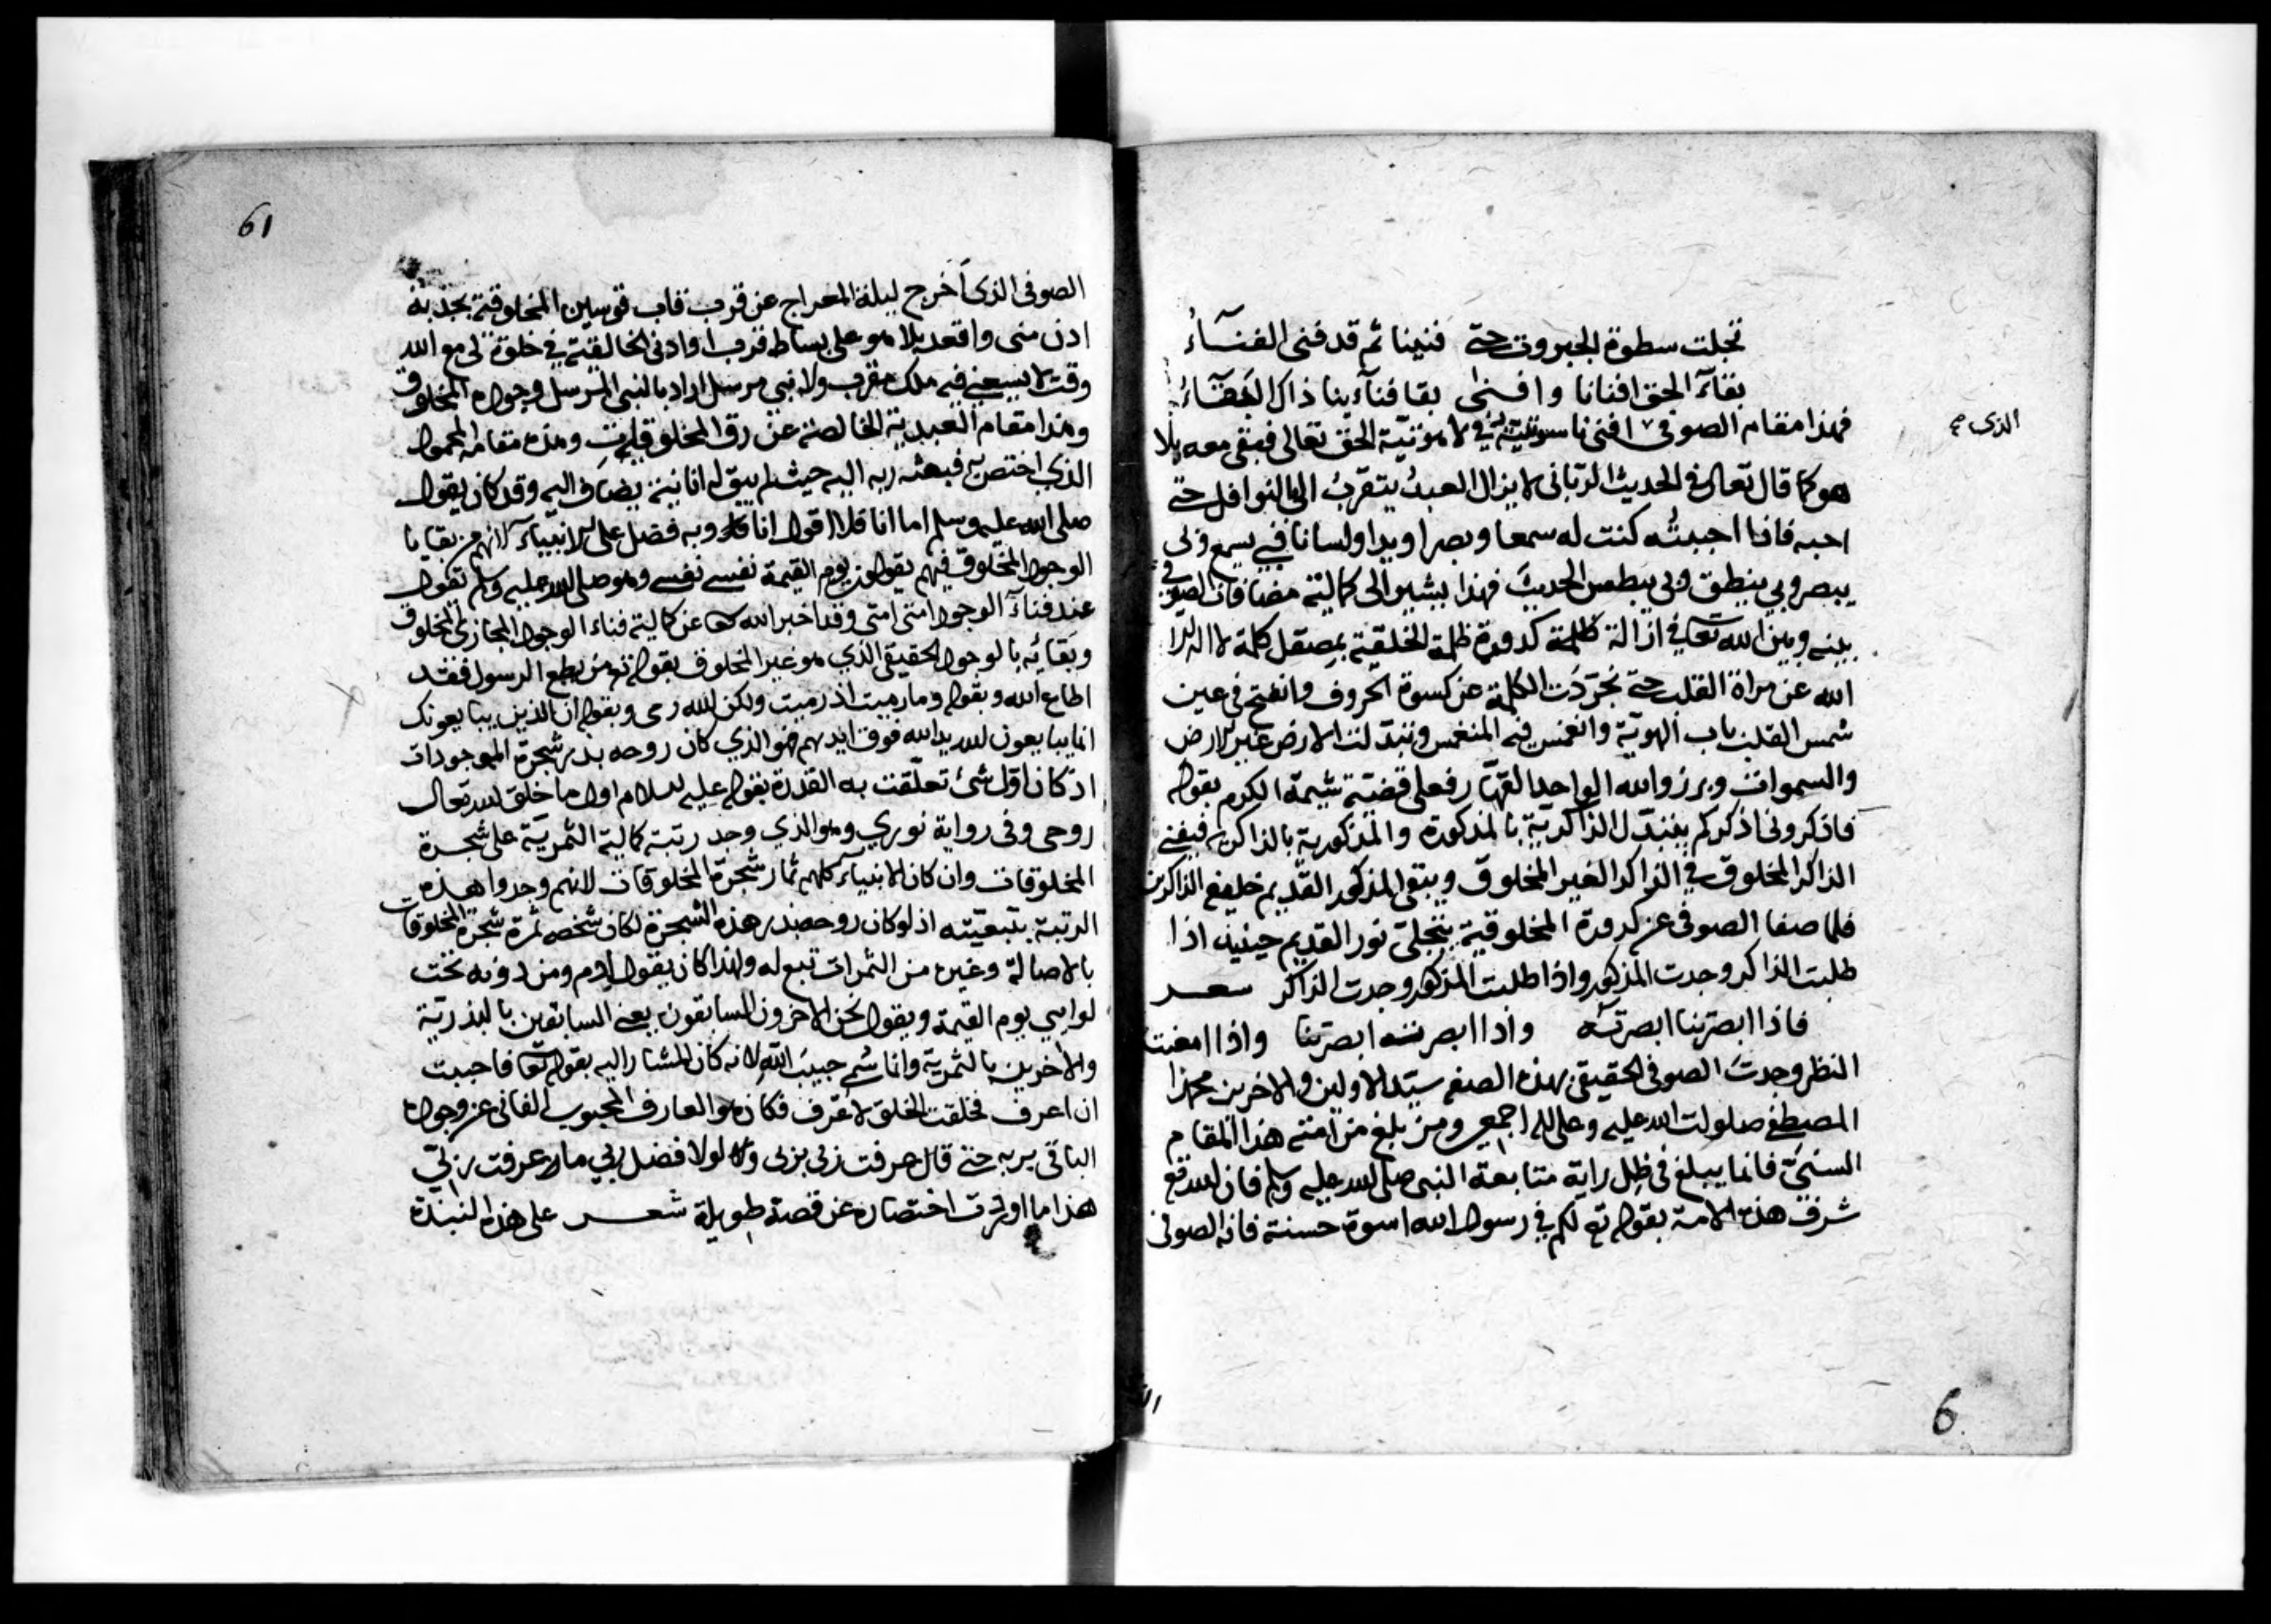 تجلت سطوة الجبروت حتى فنينا ثم قد فنى الفنآءُ
بقآء الحق افنانا وافنى بقا فنآءينا ذاك البقآءُ
فهذا مقام الصوفى افنى ناسوتيته في لاهوتيّة الحق تعالى فبقى معه بلا
الذى صح
هو كما قال تعالى في الحديث الربّانى لا يزال العبدُ يتقربُ الى بالنوافل حتى
احبه فاذا احببتُه كنت له سمعا وبصرا ويدا ولسانا فبى يسمع وبى
يبصر وبي ينطق وبي يبطش الحديثَ فهذا يشير الى كمالية مضافات الصوفى
بينه وبين الله تعا في ازالة ظلمة كدورة ظلمة الخلقية بمصقل كلمة لا اله الا
الله عن مراة القلب حتى تجرّدَت الكلمة عن كسوة الحروف وانفتح في عين
شمس القلب باب الهويّة وانغمس فيه المنغمس وتبدّلت الارض غير الارض
والسموات وبرزوا لله الواحد القهّار فعلى قضيّة شيمة الكرم بقوله
فاذكرونى اذكركم يتبدّل الذاكريّة بالمذكورة والمذكورية بالذاكرية فيفنى
الذاكر المخلوق في الذاكر الغير المخلوق ويبقى المذكور القديم خليفع الذاكرين
فلما صفا الصوفى عن كدورة المخلوقية يتجلىّ نور القديم حينيذ اذا
طلبت الذاكر وجدت المذكور واذا طلبت المذكور وجدت الذاكر شعـر
فاذا ابصرتنا ابصرتَه واذا ابصرته ابصرتنا واذا امعنت
النظر وجدتَ الصوفى الحقيقى بهذه الصفه سيّد الاولين والاخرين محمدا
المصطفى صلوات الله عليه وعلى اله اجمعين ومن بلغ من امته هذا المقام
السنىّ فانما يبلغ في ظل راية متابعة النبى صلى الله عليه وسلم فان الله تع
شرف هذه الامة بقوله تع لكم في رسول الله اسوة حسنة فانه الصوفى
6
61
الصوفى الذى اَخرج ليلة المعراج عن قرب قاب قوسين المخلوقية بجذبة
ادن منى واقعد بلا هو على بساط قرب او ادنى الخالقية في خلوة لى مع الله
وقت لا يسعنى فيه ملك مقرب ولا نبى مرسل اراد بالنبى المرسل وجوده المخلوق
وهذا مقام العبدية الخالصة عن رق المخلوقيات وهذه مقامه المحمود
الذي اختص به فبعثه ربه اليه حيث لم يبق له انانية يضاف اليه وقد كان يقول
صلى الله عليه وسلم اما انا فلا اقول انا وبه فضل على الانبياء لانهم من بقايا
الوجود المخلوق فيهم يقولون يوم القيمة نفسى نفسى وهو صلى الله عليه وسلم يقول
عند فنآء الوجود امتى امتى وقد اخبر الله تعا عن كمالية فناء الوجود المجازى المخلوق
وبقائه بالوجود الحقيقى الذي هو غير المخلوق بقوله تع من يطع الرسول فقد
اطاع الله وبقوله وما رميت اذ رميت ولكن الله رمى وبقوله ان الذين يبايعونك
انما يبايعون الله يد الله فوق ايديهم فهو الذي كان روحه بذر شجرة الموجودات
اذ كان اوّل شئ تعلّقت به القدرة بقوله عليه السلام اول ما خلق الله تعالى
روحى وفى رواية نوري وهو الذي وجد رتبة كمالية الثمريّة على شجرة
المخلوقات وان كان الانبياء كلهم ثمار شجرة المخلوقات لانهم وجدوا هذه
الرتبة بتبعيّته اذ لو كان روحه بذر هذه الشجرة لكان شخصه ثمرة شجرة المخلوقات
بالاصالة وغيره من الثمرات تبع له ولهذا كان يقول ادم ومن دونه تحت
لوايي يوم القيمة ويقول نحن الاخرون السابقون يعنى السابقين بالبذريّة
والاخرين بالثمريّة وانما سُمى حبيبَ الله لانه كان المشار اليه بقوله تعا فاحببت
ان اعرف فخلقت الخلق لاعرف فكان هو العارف المحبوب الفانى عن وجوده
الباقى بربه حتى قال عرفت ربى بربى ولولا فضل ربي ما عرفت ربّي
هذا ما اوردت اختصاره عن قصة طويلة شعـر على هذه النبذة